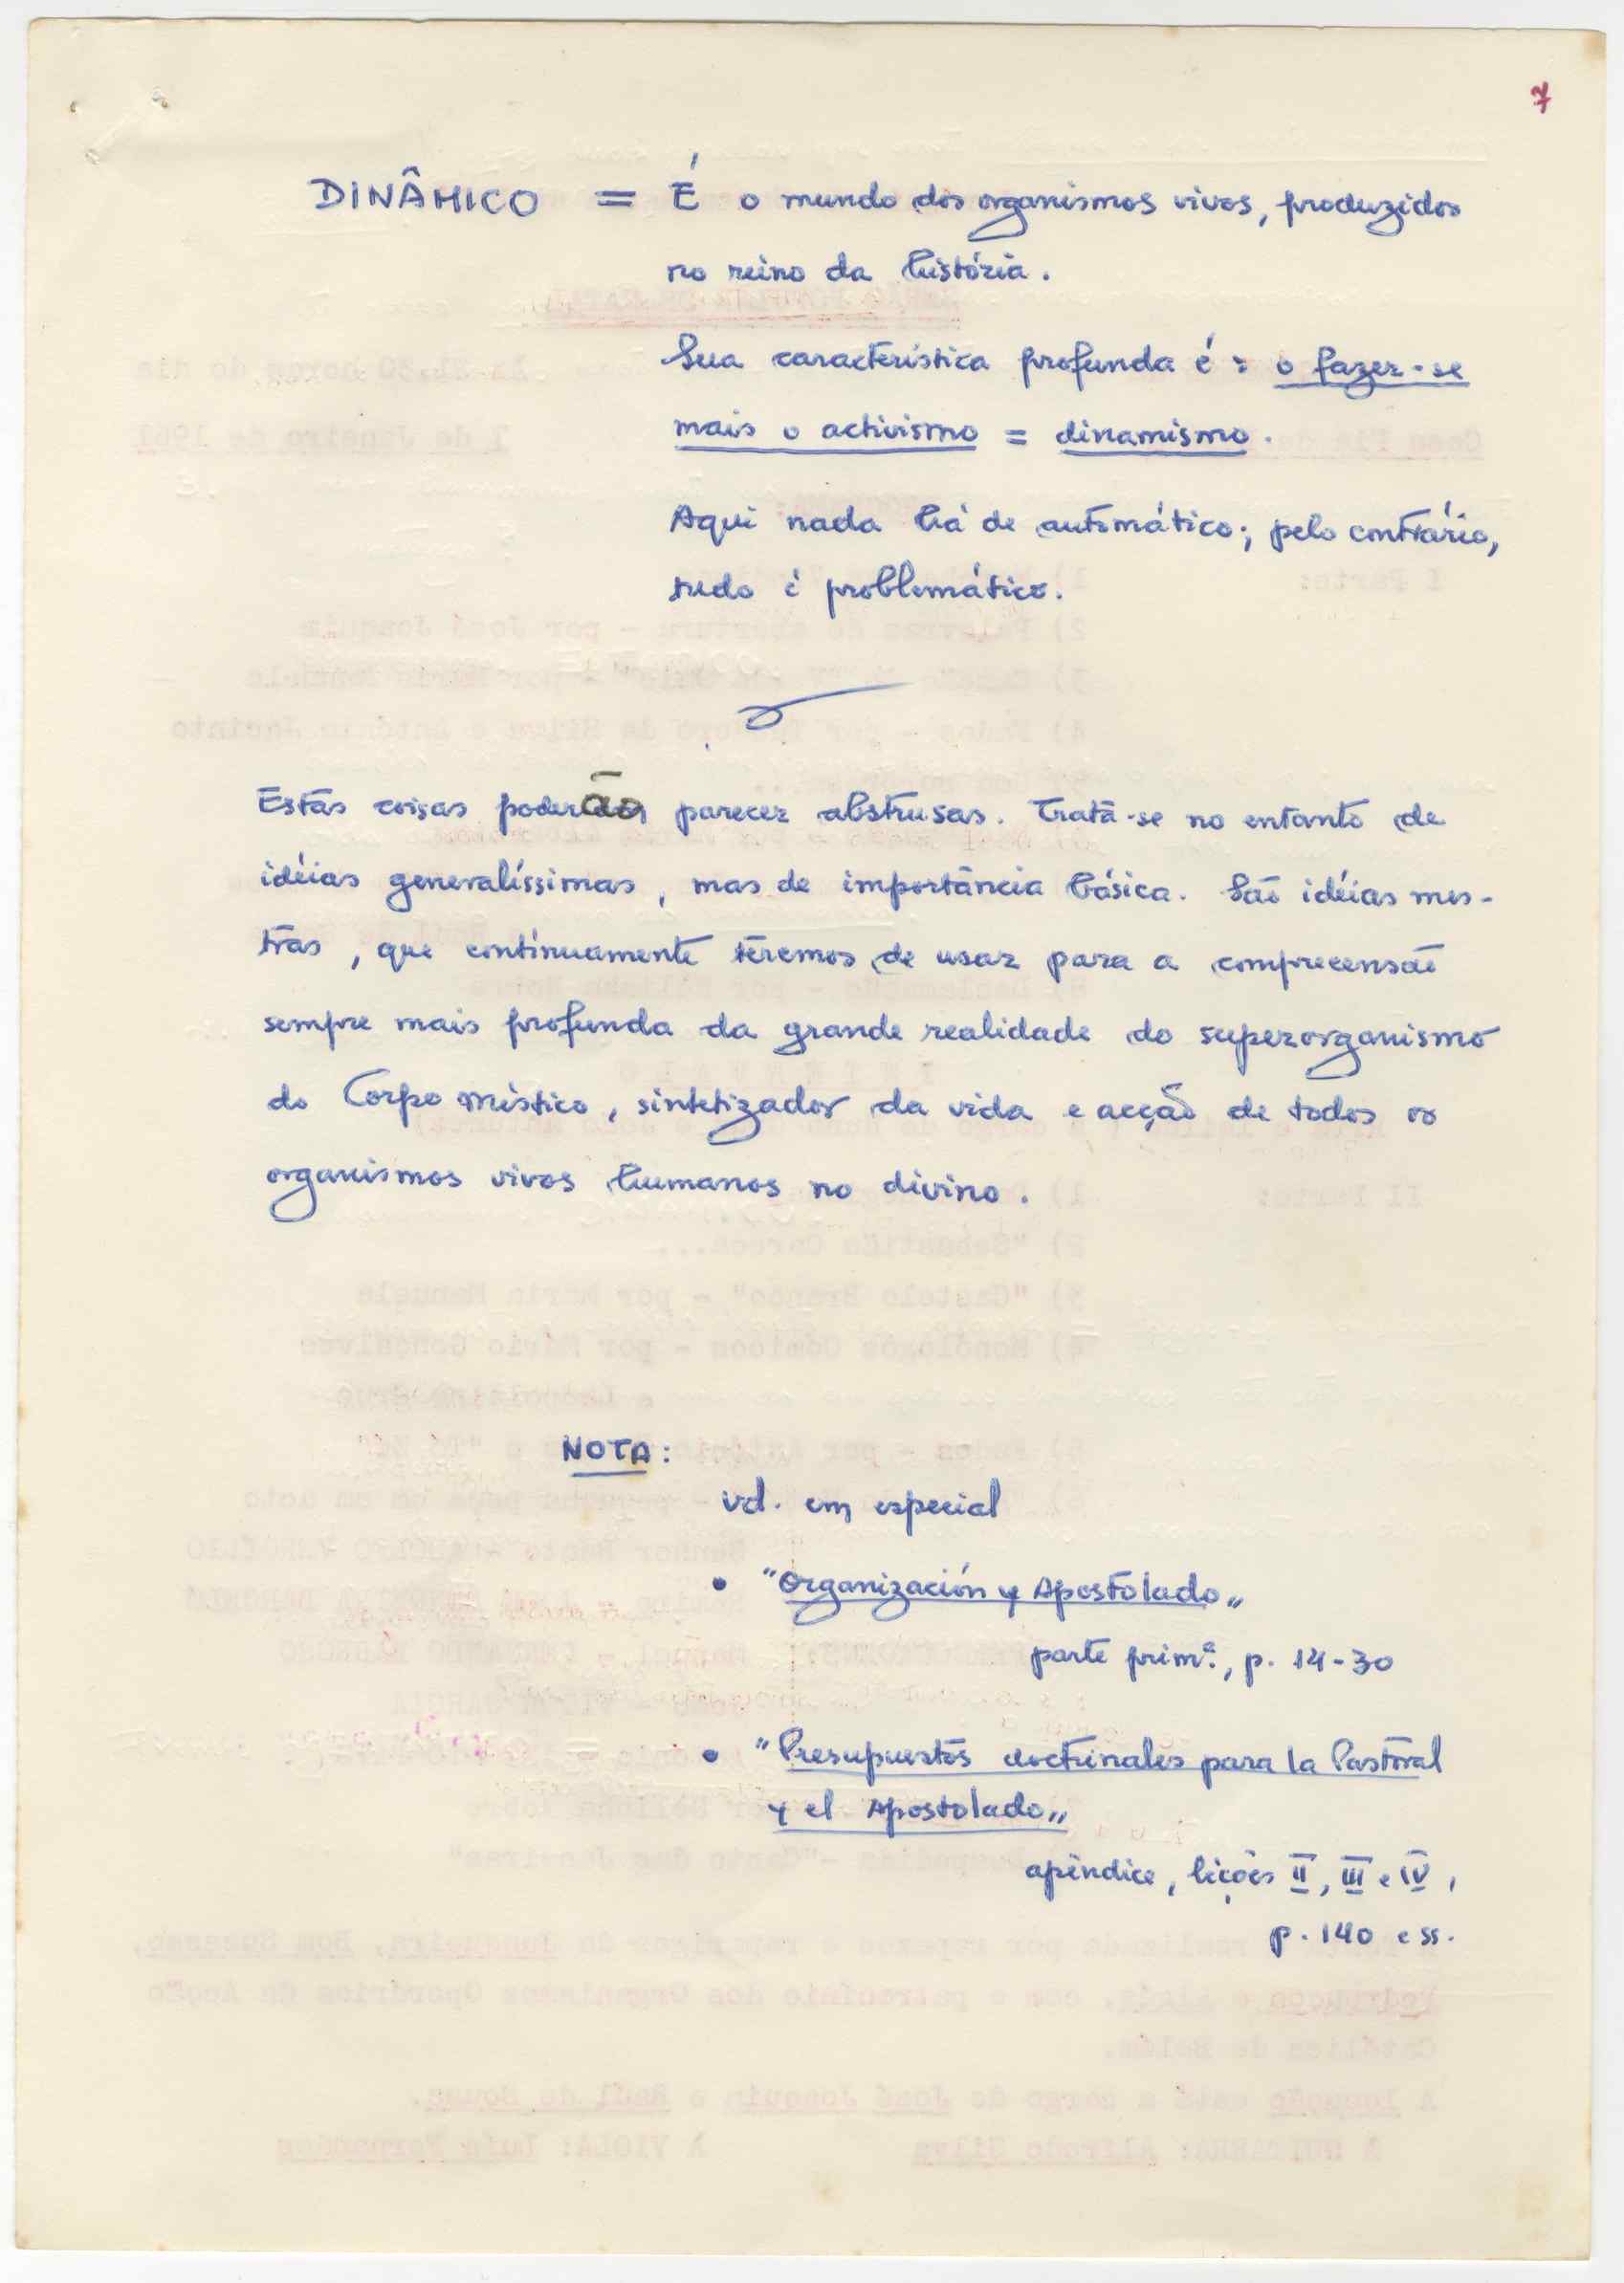 7
DINÂMICO = É o mundo dos organismos vivos, produzidos
no reino da história.
Sua característica profunda é: o fazer-se
mais o activismo = dinamismo.
Aqui nada há de automático; pelo contrário,
tudo é problemático.
Estas coisas poderão parecer abstrusas. Trata-se no entanto de
idéias generalíssimas, mas de importância básica. São idéias mes-
tras, que contìnuamente teremos de usar para a compreensão
sempre mais profunda da grande realidade do superorganismo
do Corpo místico, sintetizador da vida e acção de todos os
organismos vivos humanos no divino.
NOTA:
vd. em especial
• "Organización y Apostolado"
parte prim.ª, p. 14-30
• "Presupuestos doctrinales para la Pastoral
y el Apostolado"
apêndice, lições II, III e IV,
p. 140 e ss.